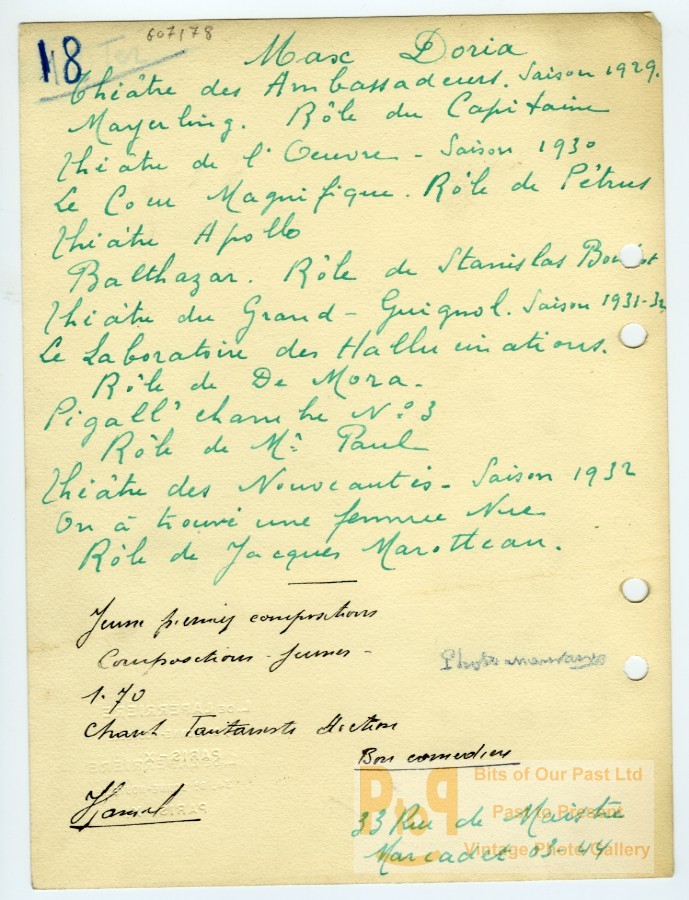 18
607178
Max Doria
Théâtre des Ambassadeurs. Saison 1929.
Mayerling. Rôle du Capitaine
Théâtre de l'Oeuvre - Saison 1930
Le Coeur Magnifique. Rôle de Pétrus
Théâtre Apollo
Balthazar. Rôle de Stanislas
Théâtre du Grand-Guignol. Saison 1931-32
Le Laboratoire des Hallucinations.
Rôle de De Mora.
Pigall' chambre No 3
Rôle de Mr Paul
Théâtre des Nouveautés - Saison 1932
On à trouvé une femme Nue
Rôle de Jacques Marotteau.
Jeune compositions
Compositions - Jeunes -
1.70
Chant diction
Photo
Bon comédien
33 Rue de Maistre
Marcadet 03-44
Bits of Our Past Ltd
PtoP
Past to Present
Vintage Photo Gallery